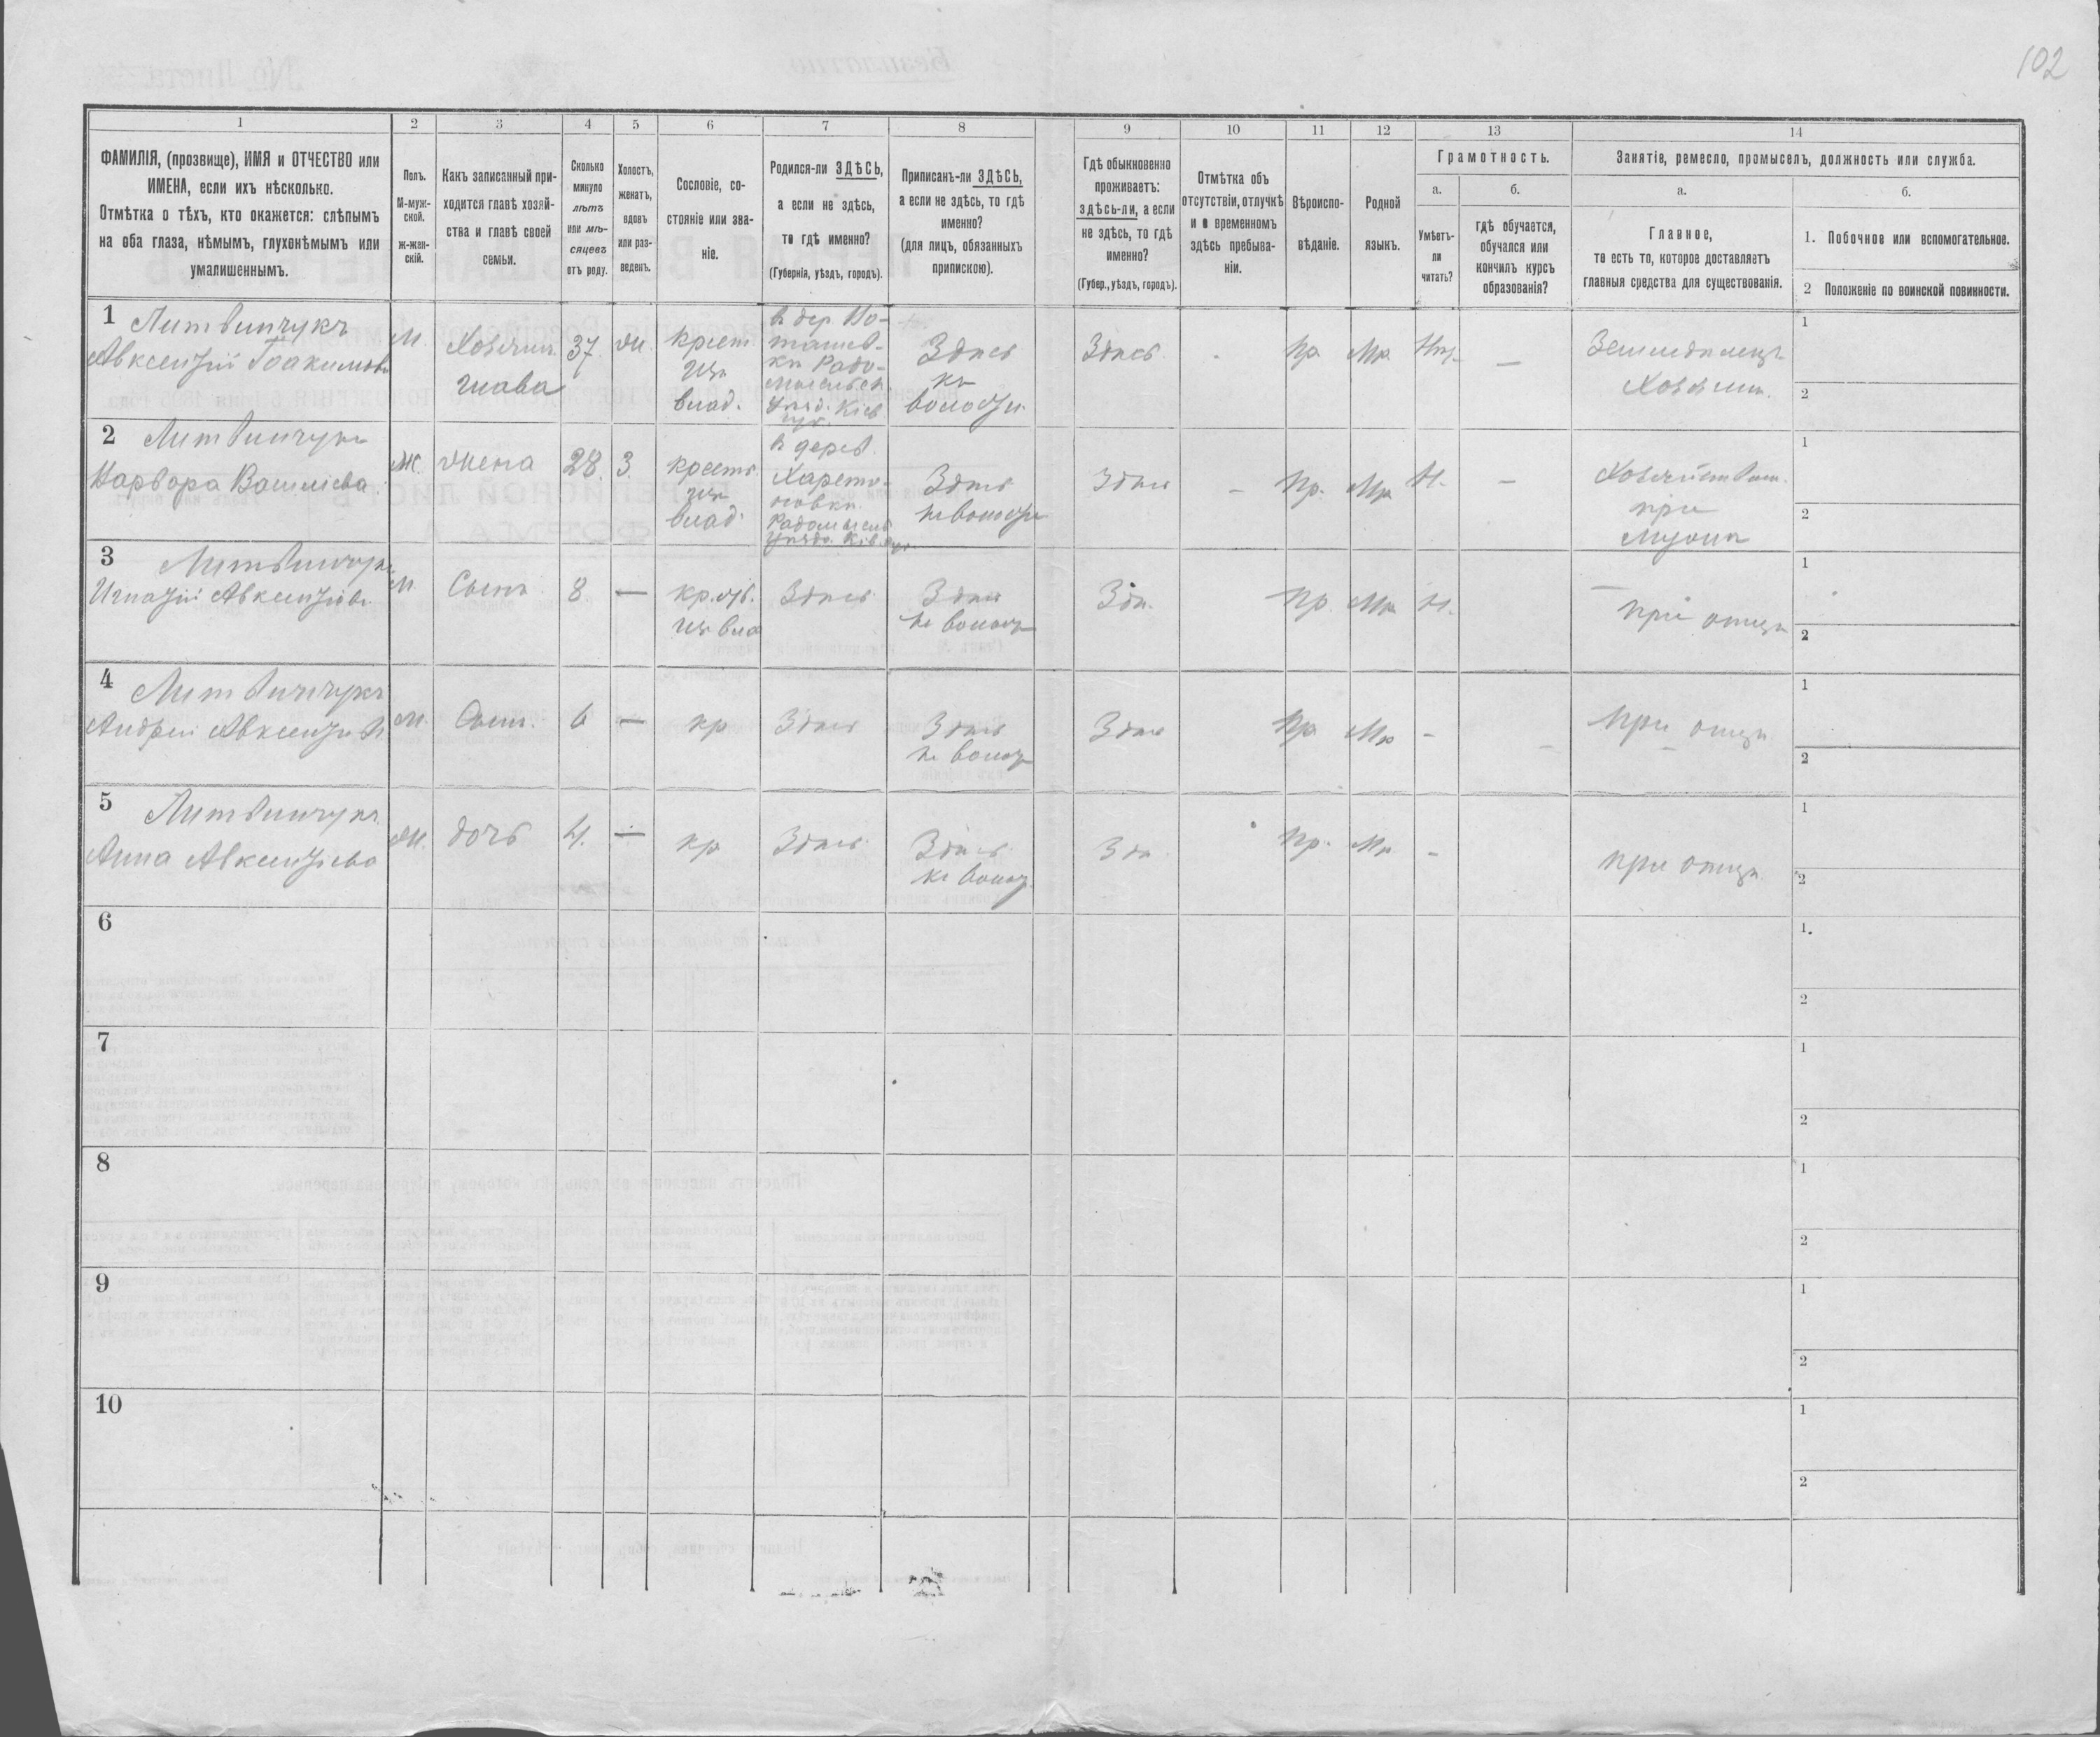 102
1 2 3 4 5 6 7 8 9 10 11 12 13 14
ФАМИЛІЯ, (прозвище), ИМЯ и ОТЧЕСТВО или
ИМЕНА, если ихъ нѣсколько.
Отмѣтка о тѣхъ, кто окажется: слѣпымъ
на оба глаза, нѣмымъ, глухонѣмымъ или
умалишеннымъ.
Полъ.
М-муж-
ской.
ж-жен-
скій.
Какъ записанный при-
ходится главѣ хозяй-
ства и главѣ своей
семьи.
Сколько
минуло
лѣтъ
или мѣ-
сяцевъ
отъ роду.
Холостъ,
женатъ,
вдовъ
или раз-
веденъ.
Сословіе, со-
стояніе или зва-
ніе.
Родился-ли ЗДѢСЬ,
а если не здѣсь,
то гдѣ именно?
(Губернія, уѣздъ, городъ).
Приписанъ-ли ЗДѢСЬ,
а если не здѣсь, то гдѣ
именно?
(для лицъ, обязанныхъ
припискою).
Гдѣ обыкновенно
проживаетъ:
здѣсь-ли, а если
не здѣсь, то гдѣ
именно?
(Губер., уѣздъ, городъ).
Отмѣтка объ
отсутствіи, отлучкѣ
и о временномъ
здѣсь пребыва-
ніи.
Вѣроиспо-
вѣданіе.
Родной
языкъ.
Грамотность.
а.
Умѣетъ-
ли
читать?
б.
гдѣ обучается,
обучался или
кончилъ курсъ
образованія?
Занятіе, ремесло, промыселъ, должность или служба.
а.
Главное,
то есть то, которое доставляетъ
главныя средства для существованія.
б.
1. Побочное или вспомогательное.
2 Положеніе по воинской повинности.
1
Литвинчукъ
Авксентій Іоакимовъ
М.
Хозяин.
глава
37
ж.
крест.
изъ
влад.
въ дер. По-
ташев-
ки Радо-
мысльск.
уѣзд. Кіев.
губ.
Здѣсь
къ
волости
Здѣсь
-
Пр.
Мр.
Нѣт.
—
Земледѣлецъ
Хозяин.
1
2
2
Литвинчукъ
Варвара Василіева
Ж.
жена
28
З.
крест.
изъ
влад.
въ дерев.
Радомысль
уѣзда. Кіев. губ.
Здѣсь
къ волости
Здѣсь
-
Пр.
Мр.
Н.
—
при
мужѣ
1
2
3
Литвинчукъ
Игнатій Авксентіевъ
М
Сынъ
8
—
изъ вла
Здѣсь
Здѣсь
къ волост
Здѣ.
Пр.
Мр.
Н.
при отцѣ
1
2
4
Литвинчукъ
Андрей Авксентіевъ
М.
Сынъ.
6
—
кр
Здѣсь
Здѣсь
къ волост
Здѣсь
Пр
Мр
-
при отцѣ
1
2
5
Литвинчукъ
Анна Авксентіева
Ж.
дочь
4.
—
кр
Здѣсь
Здѣсь
къ волост.
Здѣ.
Пр.
Мр.
-
при отцѣ.
1
2
6
1.
2
7
1
2
8
1
2
9
1
2
10
1
2